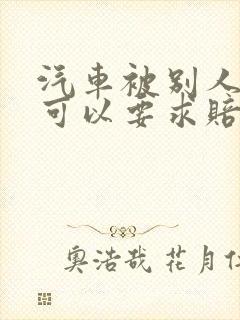 汽車被别人
可以要求賠
奥浩哉 花月仁